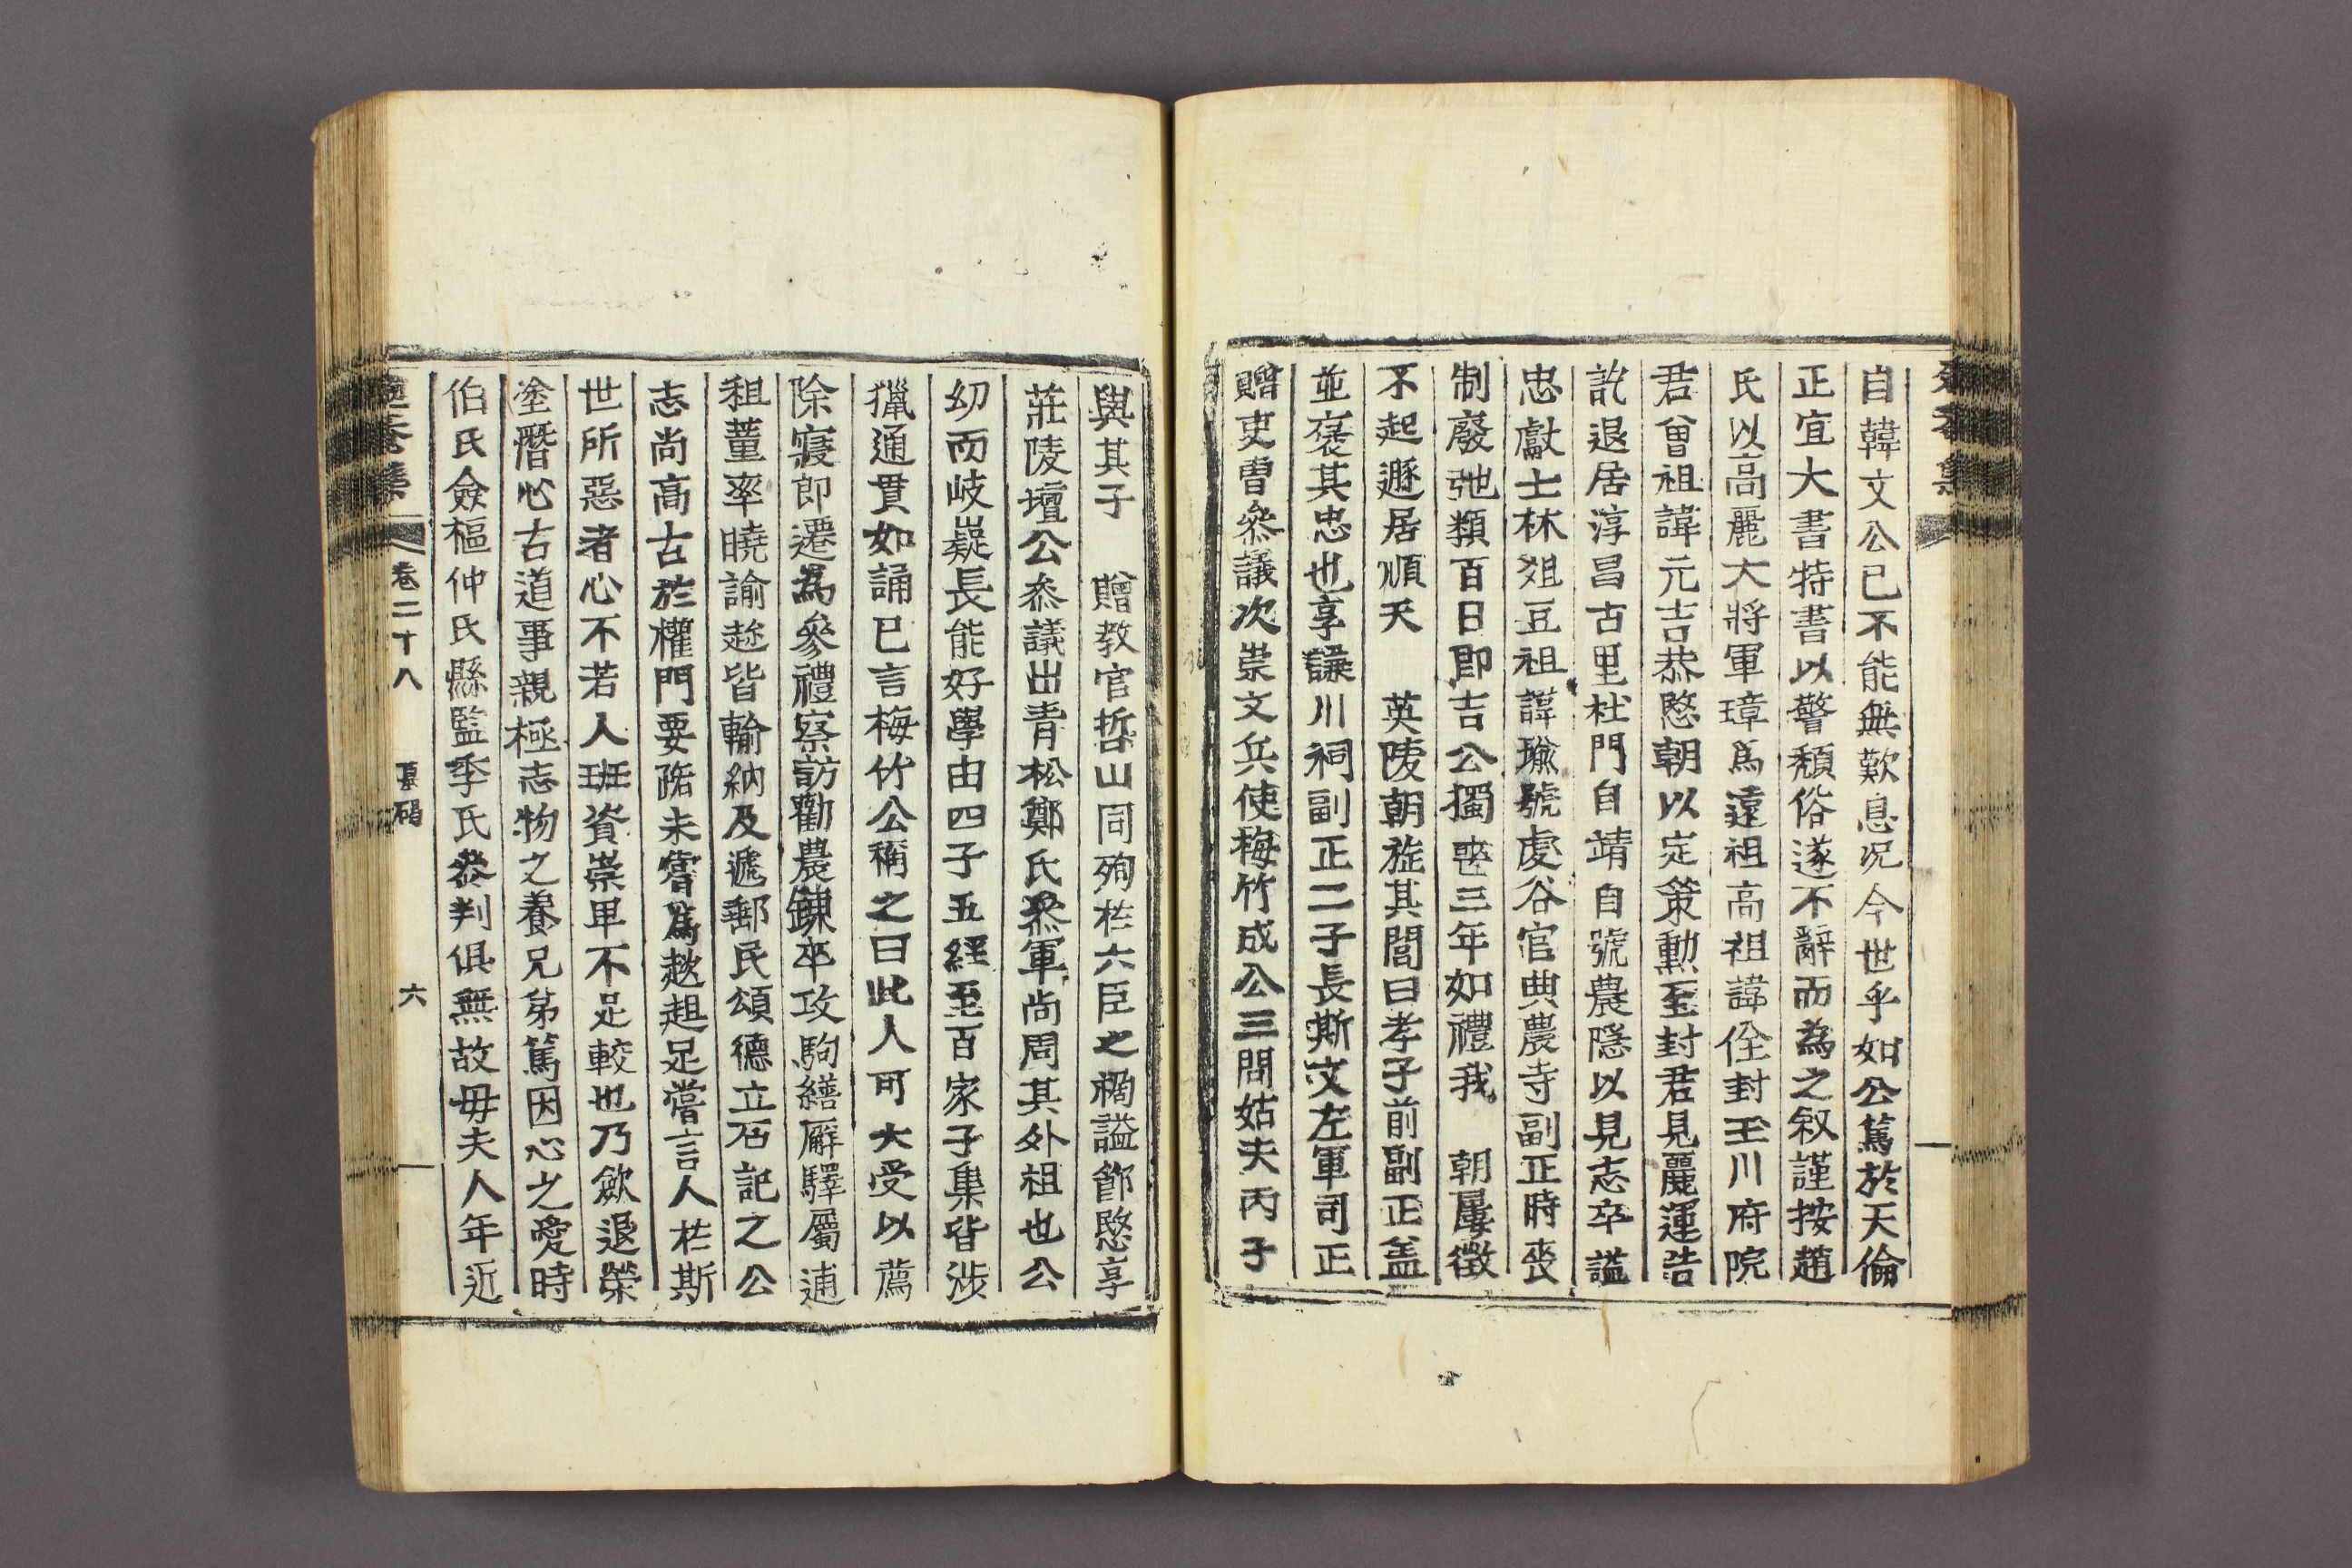 自韓文公已不能無歎息况今世乎如公篤於天倫
正宜大書特書以警頹俗遂不辭而為之敘謹按趙
氏以高麗大將軍璋爲遠祖高祖諱佺封玉川府院
君曾祖諱元吉恭愍朝以定策勳至封君見麗運告
訖退居淳昌古里杜門自靖自號農隱以見志卒謚
忠獻士林俎豆祖諱瑜號虔谷官典農寺副正時喪
制廢弛類百日即吉公獨喪三年如禮我 朝屢徵
不起遯居順天 英陵朝旌其閭曰孝子前副正盖
並褒其忠也享謙川祠副正二子長斯文左軍司正
贈吏曹參議次崇文兵使梅竹成公三問姑夫丙子
與其子 贈教官哲山同殉於六臣之禍謚節愍享
莊陵壇公叅議出青松鄭氏叅軍尚周其外祖也公
幼而岐嶷長能好學由四子五經至百家子集皆涉
獵通貫如誦已言梅竹公稱之曰此人可大受以薦
除寢郎遷為參禮察訪勸農鍊卒攻駒繕廨驛屬逋
租董率曉諭趂皆輸納及遞郵民頌德立石記之公
志尚高古於權門要路未嘗爲趑趄足嘗言人於斯
世所惡者心不若人班資崇卑不足較也乃歛退榮
塗潛心古道事親極志物之養兄弟篤因心之愛時
伯氏僉樞仲氏縣監季氏叅判俱無故毋夫人年近
卷二十八 墓碣 六